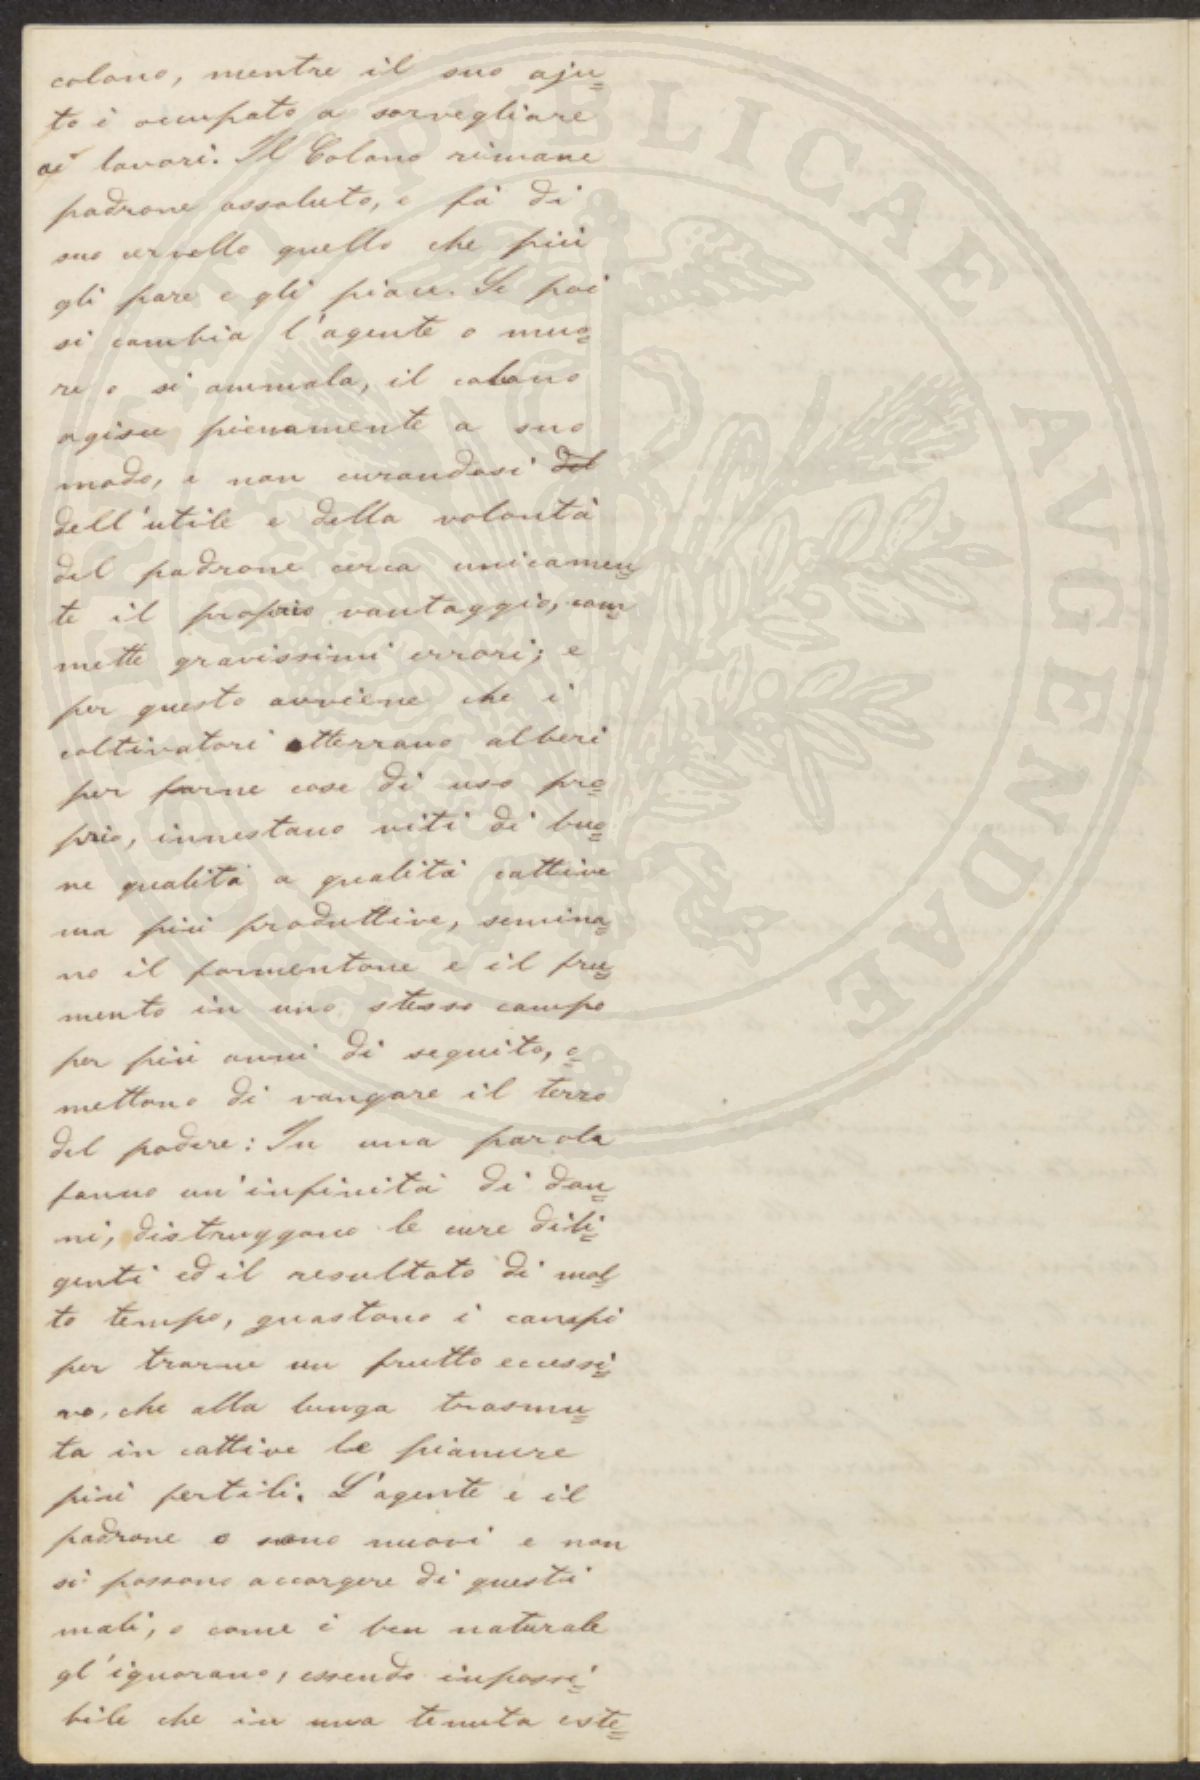 colono, mentre il suo aju=
to è occupato a sorvegliare
ai lavori. Il Colono rimane
padrone assoluto, e fà di
suo cervello quello che più
gli pare e gli piace. Se poi
si cambia l'agente o muo=
re o si ammala, il colono
agisce pienamente a suo
modo, e non curandosi del
dell'utile e della volontà
del padrone cerca unicamen=
te il proprio vantaggio, com=
mette gravissimi errori; e
per questo avviene che i
coltivatori atterrano alberi
per farne cose di uso pro=
prio, innestano viti di buo=
ne qualità a qualità cattive
ma più produttive, semina=
no il formentone e il fru=
mento in uno stesso campo
per più anni di seguito, o=
mettono di vangare il terzo
del podere: In una parola
fanno un'infinità di dan=
ni, distruggono le cure dili=
genti ed il resultato di mol
to tempo, guastono i campi
per trarne un frutto eccessi=
vo, che alla lunga trasmu=
ta in cattive le pianure
più fertili. L'agente e il
padrone o sono nuovi e non
si possono accorgere di questi
mali, o come è ben naturale
gl'ignorano, essendo impossi=
bile che in una tenuta este=
PVBLICAE AVGENDAE